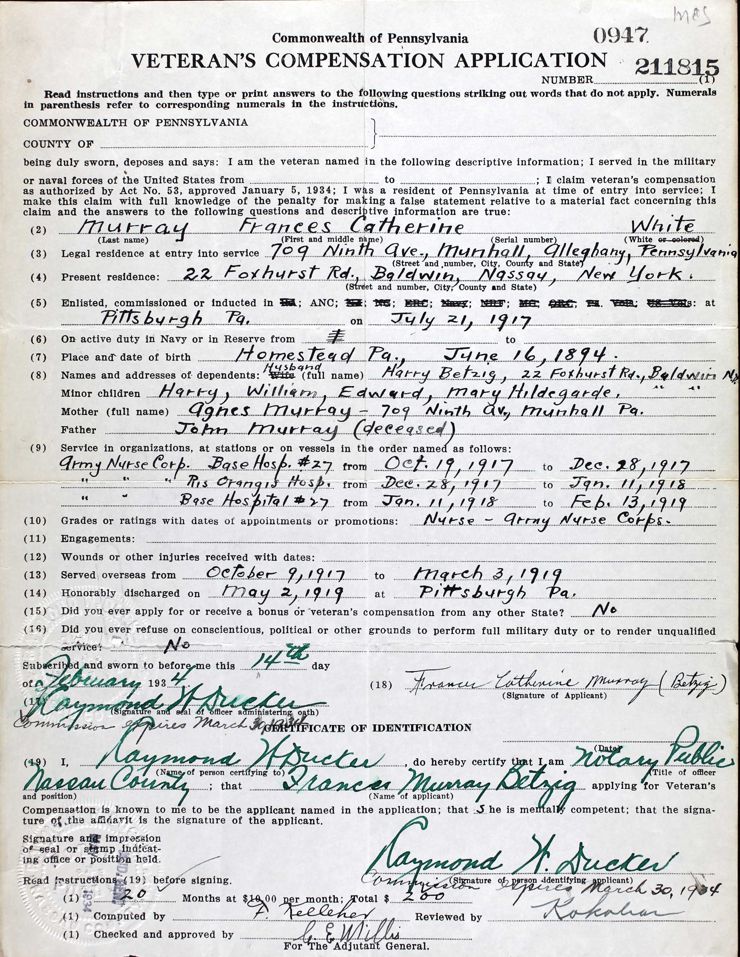 mcs
Commonwealth of Pennsylvania 0947
VETERAN'S COMPENSATION APPLICATION
NUMBER 211815 (1)
Read instructions and then type or print answers to the following questions striking out words that do not apply. Numerals
in parenthesis refer to corresponding numerals in the instructions.
COMMONWEALTH OF PENNSYLVANIA
COUNTY OF
being duly sworn, deposes and says: I am the veteran named in the following descriptive information; I served in the military
or naval forces of the United States from to ; I claim veteran's compensation
as authorized by Act No. 53, approved January 5, 1934; I was a resident of Pennsylvania at time of entry into service; I
make this claim with full knowledge of the penalty for making a false statement relative to a material fact concerning this
claim and the answers to the following questions and descriptive information are true:
(2) Murray Frances Catherine White
(Last name) (First and middle name) (Serial number) (White or colored)
(3) Legal residence at entry into service 709 Ninth Ave., Munhall, Alleghany, Pennsylvania
(Street and number, City, County and State)
(4) Present residence: 22 Foxhurst Rd., Baldwin, Nassay, New York.
(Street and number, City, County and State)
(5) Enlisted, commissioned or inducted in RA; ANC; NA; NG; ERC; Navy; NRF; MC; ORC; PA. Vols.; US Vols: at
Pittsburgh Pa. on July 21, 1917
(6) On active duty in Navy or in Reserve from to
(7) Place and date of birth Homestead Pa., June 16, 1894.
(8) Names and addresses of dependents: Husband Wife (full name) Harry Betzig, 22 Foxhurst Rd., Baldwin Ny
Minor children Harry, William, Edward, Mary Hildegarde. " "
Mother (full name) Agnes Murray - 709 Ninth Av, Munhall Pa.
Father John Murray (deceased)
(9) Service in organizations, at stations or on vessels in the order named as follows:
Army Nurse Corp. Base Hosp. #27 from Oct. 19, 1917 to Dec. 28, 1917
" " " Ris Orangis Hosp. from Dec. 28, 1917 to Jan. 11, 1918
" " Base Hospital #27 from Jan. 11, 1918 to Feb. 13, 1919
(10) Grades or ratings with dates of appointments or promotions: Nurse - Army Nurse Corps.
(11) Engagements:
(12) Wounds or other injuries received with dates:
(13) Served overseas from October 9, 1917 to March 3, 1919
(14) Honorably discharged on May 2, 1919 at Pittsburgh Pa.
(15) Did you ever apply for or receive a bonus or veteran's compensation from any other State? No
(16) Did you ever refuse on conscientious, political or other grounds to perform full military duty or to render unqualified
service? No
Subscribed and sworn to before me this 14th day
of February 1934
(17) Raymond W Ducker (18) Frances Catherine Murray (Betzig)
(Signature and seal of officer administering oath) (Signature of Applicant)
Commission expires March 30, 1934
CERTIFICATE OF IDENTIFICATION
(Date)
(19) I, Raymond W Ducker, do hereby certify that I am Notary Public
(Name of person certifying to) (Title of officer
Nassau County; that Frances Murray Betzig applying for Veteran's
and position) (Name of applicant)
Compensation is known to me to be the applicant named in the application; that She is mentally competent; that the signa-
ture of the affidavit is the signature of the applicant.
Signature and impression
of seal or stamp indicat-
ing office or position held. Raymond W. Ducker
Read instructions (19) before signing. (Signature of person identifying applicant)
Commission expires March 30, 1934
(1) 20 Months at $10.00 per month; Total $ 200
(1) Computed by F Kelleher Reviewed by
(1) Checked and approved by C E Willis
For The Adjutant General.